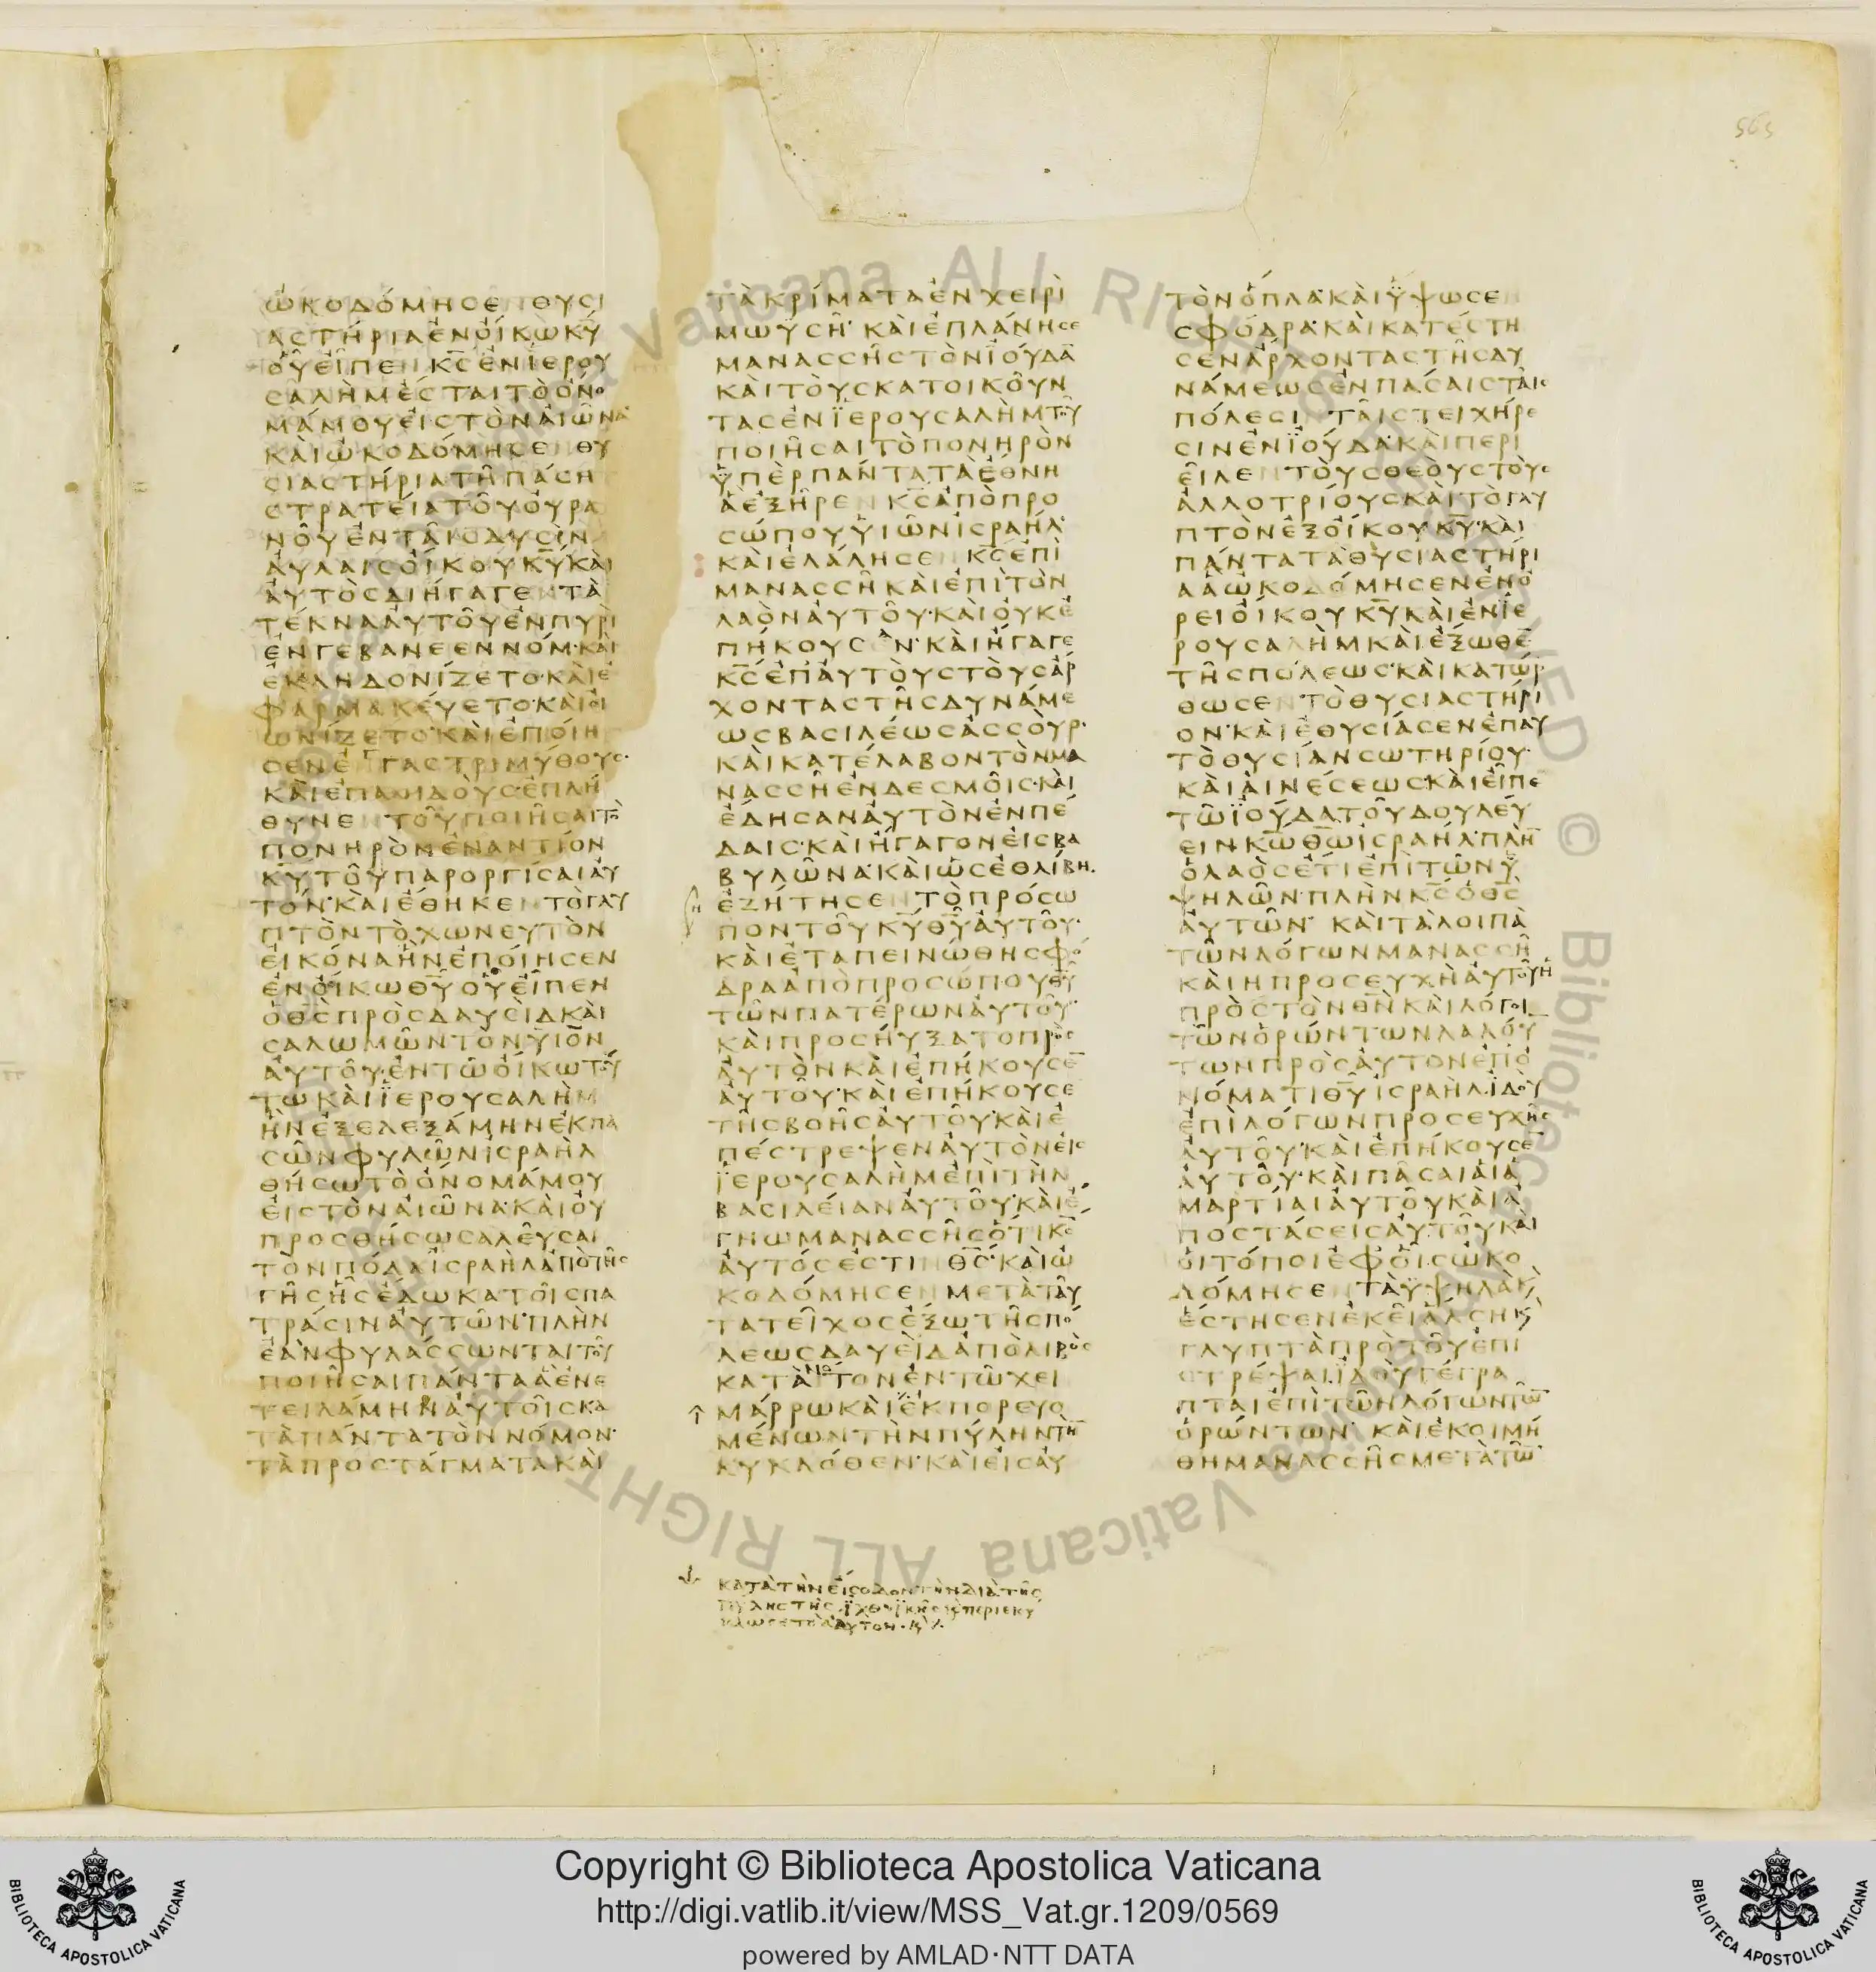 565
ὠκοδόμησεν θυσι
αστήρια ἐν οἴκω κ̅υ̅
οὗ εἶπεν κ̅ς̅ ἐν ϊερου
σαλὴμ ἔσται τὸ ὄνο
μά μου εἰς τὸν αἰῶνα·
καὶ ὠκοδόμησεν θυ
σιαστήρια τῆ πάση
στρατεία τοῦ οὐρα
νοῦ ἐν ταῖς δυσὶν
αὐλαῖς οἴκου κ̅υ̅ καὶ
αὐτὸς διήγαγεν τὰ
τέκνα αὐτοῦ ἐν πυρὶ
ἐν γεβανεεννόμ· καὶ
ἐκληδονίζετο· καὶ ἐ
φαρμακεύετο· καὶ οἰ
ωνίζετο· καὶ ἐποίη
σεν ἐγγαστριμύθους·
καὶ ἐπαοιδοὺς· ἐπλή
θυνεν τοῦ ποιῆσαι τὸ
πονηρὸν ἐναντίον
κ̅υ̅ τοῦ παροργίσαι αὐ
τόν· καὶ ἔθηκεν τὸ γλυ
πτὸν τὸ χωνευτὸν
εἰκόνα ἣν ἐποίησεν
ἐν οἴκω θ̅υ̅ οὗ εἶπεν
ὁ θ̅ς̅ πρὸς δαυεὶδ καὶ
σαλωμῶν τὸν ϋἱὸν
αὐτοῦ· ἐν τῶ οἴκω τού
τω καὶ ϊερουσαλὴμ
ἣν ἐξελεξάμην ἐκ πα
σῶν φυλῶν ἰσραὴλ
θήσω τὸ ὄνομά μου
εἰς τὸν αἰῶνα· καὶ οὐ
προσθήσω σαλεῦσαι
τὸν πόδα ἰσραὴλ ἀπὸ τῆς
γῆς ἧς ἔδωκα τοῖς πα
τράσιν αὐτῶν· πλὴν
ἐὰν φυλάσσωνται τοῦ
ποιῆσαι πάντα ἃ ἐνε
τειλάμην αὐτοῖς κα
τὰ πάντα τὸν νόμον·
τὰ προστάγματα καὶ
τὰ κρίματα ἐν χειρὶ
μωϋσῆ· καὶ ἐπλάνησε
μανασσῆς τὸν ϊούδα̅
καὶ τοὺς κατοικοῦν
τας ἐν ϊερουσαλὴμ τοῦ
ποιῆσαι τὸ πονηρὸν
ϋπὲρ πάντα τὰ ἔθνη
ἃ ἐξῆρεν κ̅ς̅ ἀπὸ προ
σώπου ϋἱῶν ἰσραήλ·
καὶ ἐλάλησεν κ̅ς̅ ἐπὶ
μανασσῆ καὶ ἐπὶ τὸν
λαὸν αὐτοῦ· καὶ οὐκ ἐ
πήκουσαν· καὶ ἤγαγε
κ̅ς̅ ἐπ' αὐτοὺς τοὺς ἄρ
χοντας τῆς δυνάμε
ως βασιλέως ἀσσούρ·
καὶ κατέλαβον τὸν μα
νασσῆ ἐν δεσμοῖς· καὶ
ἔδησαν αὐτὸν ἐν πέ
δαις· καὶ ἤγαγον εἰς βα
βυλῶνα· καὶ ὡς ἐθλίβη.
ἐζήτησεν τὸ πρόσω
πον τοῦ κ̅υ̅ θ̅υ̅ αὐτοῦ·
καὶ ἐταπεινώθη σφό
δρα ἀπὸ προσώπου θ̅υ̅
τῶν πατέρων αὐτοῦ·
καὶ προσηύξατο πρὸς
αὐτὸν καὶ ἐπήκουσε̅
αὐτοῦ· καὶ ἐπήκουσε
τῆς βοῆς αὐτοῦ· καὶ ἐ
πέστρεψεν αὐτὸν εἰς
ϊερουσαλὴμ ἐπὶ τὴν
βασιλείαν αὐτοῦ· καὶ ἔ
γνω μανασσῆς ὅτι κ̅ς̅
αὐτός ἐστιν θ̅ς̅· καὶ ᾠ
κοδόμησεν μετὰ ταῦ
τα τεῖχος ἔξω τῆς πό
λεως δαυεὶδ ἀπὸ λιβὸς
κατὰ νότον ἐν τῶ χει
μάρρω καὶ ἐκπορευο
μένων τὴν πύλην τὴ̅
κυκλόθεν· καὶ εἰς αὐ
τὸν ὅπλα· καὶ ϋψωσεν
σφόδρα· καὶ κατέστη
σεν ἄρχοντας τῆς δυ
νάμεως ἐν πάσαις ταῖς
πόλεσιν ταῖς τειχήρε
σιν ἐν ϊούδα· καὶ περι
εῖλεν τοὺς θεοὺς τοὺς
ἀλλοτρίους καὶ τὸ γλυ
πτὸν ἐξ οἴκου κ̅υ̅· καὶ
πάντα τὰ θυσιαστήρι
α ἃ ὠκοδόμησεν ἐν ὄ
ρει οἴκου κ̅υ̅ καὶ ἐν ϊε
ρουσαλὴμ καὶ ἔξωθε̅
τῆς πόλεως· καὶ κατώρ
θωσεν τὸ θυσιαστήρι
ον· καὶ ἐθυσίασεν ἐπ' αυ
τὸ θυσίαν σωτηρίου·
καὶ αἰνέσεως· καὶ εἶπε
τῶ ϊούδα τοῦ δουλεύ
ειν κ̅ω̅ θ̅ω̅ ἰσραήλ· πλὴ̅
ὁ λαὸς ἔτι ἐπὶ τῶν ϋ
ψηλῶν· πλὴν κ̅ς̅ ὁ θ̅ς̅
αὐτῶν· καὶ τὰ λοιπὰ
τῶν λόγων μανασσῆ
καὶ η προσευχὴ αὐτοῦ ἡ
πρὸς τὸν θ̅ν̅ καὶ λόγοι
τῶν ὁρώντων λαλού
των πρὸς αὐτον ἐπ' ὀ
νόματι θ̅υ̅ ἰσραήλ· ϊδοὺ
ἐπὶ λόγων προσευχῆς
αὐτοῦ· καὶ ἐπήκουσε̅
αὐτοῦ· καὶ πᾶσαι αἱ ἁ
μαρτίαι αὐτοῦ καὶ ἀ
ποστάσεις αὐτοῦ καὶ
οἱ τόποι ἐφ' οἷς ὠκο
δόμησεν τὰ ϋψηλὰ κ̀
ἔστησεν ἐκεῖ ἄλση κ̀
γλυπτὰ πρὸ τοῦ ἐπι
στρέψαι. ϊδοὺ γέγρα
πται ἐπὶ τῶν λόγων τῶ̅
ὁρώντων· καὶ ἐκοιμή
θη μανασσῆς μετὰ τῶ̅
κατὰ τὴν εἴσοδον τὴν διὰ τῆς
πύλης τῆς ϊχθυϊκῆς κ̀ περιεκύ
κλωσε τὸ ἄδυτον· κ̀
Copyright © Biblioteca Apostolica Vaticana
http://digi.vatlib.it/view/MSS_Vat.gr.1209/0569
powered by AMLAD·NTT DATA
BIBLIOTECA APOSTOLICA VATICANA
BIBLIOTECA APOSTOLICA VATICANA